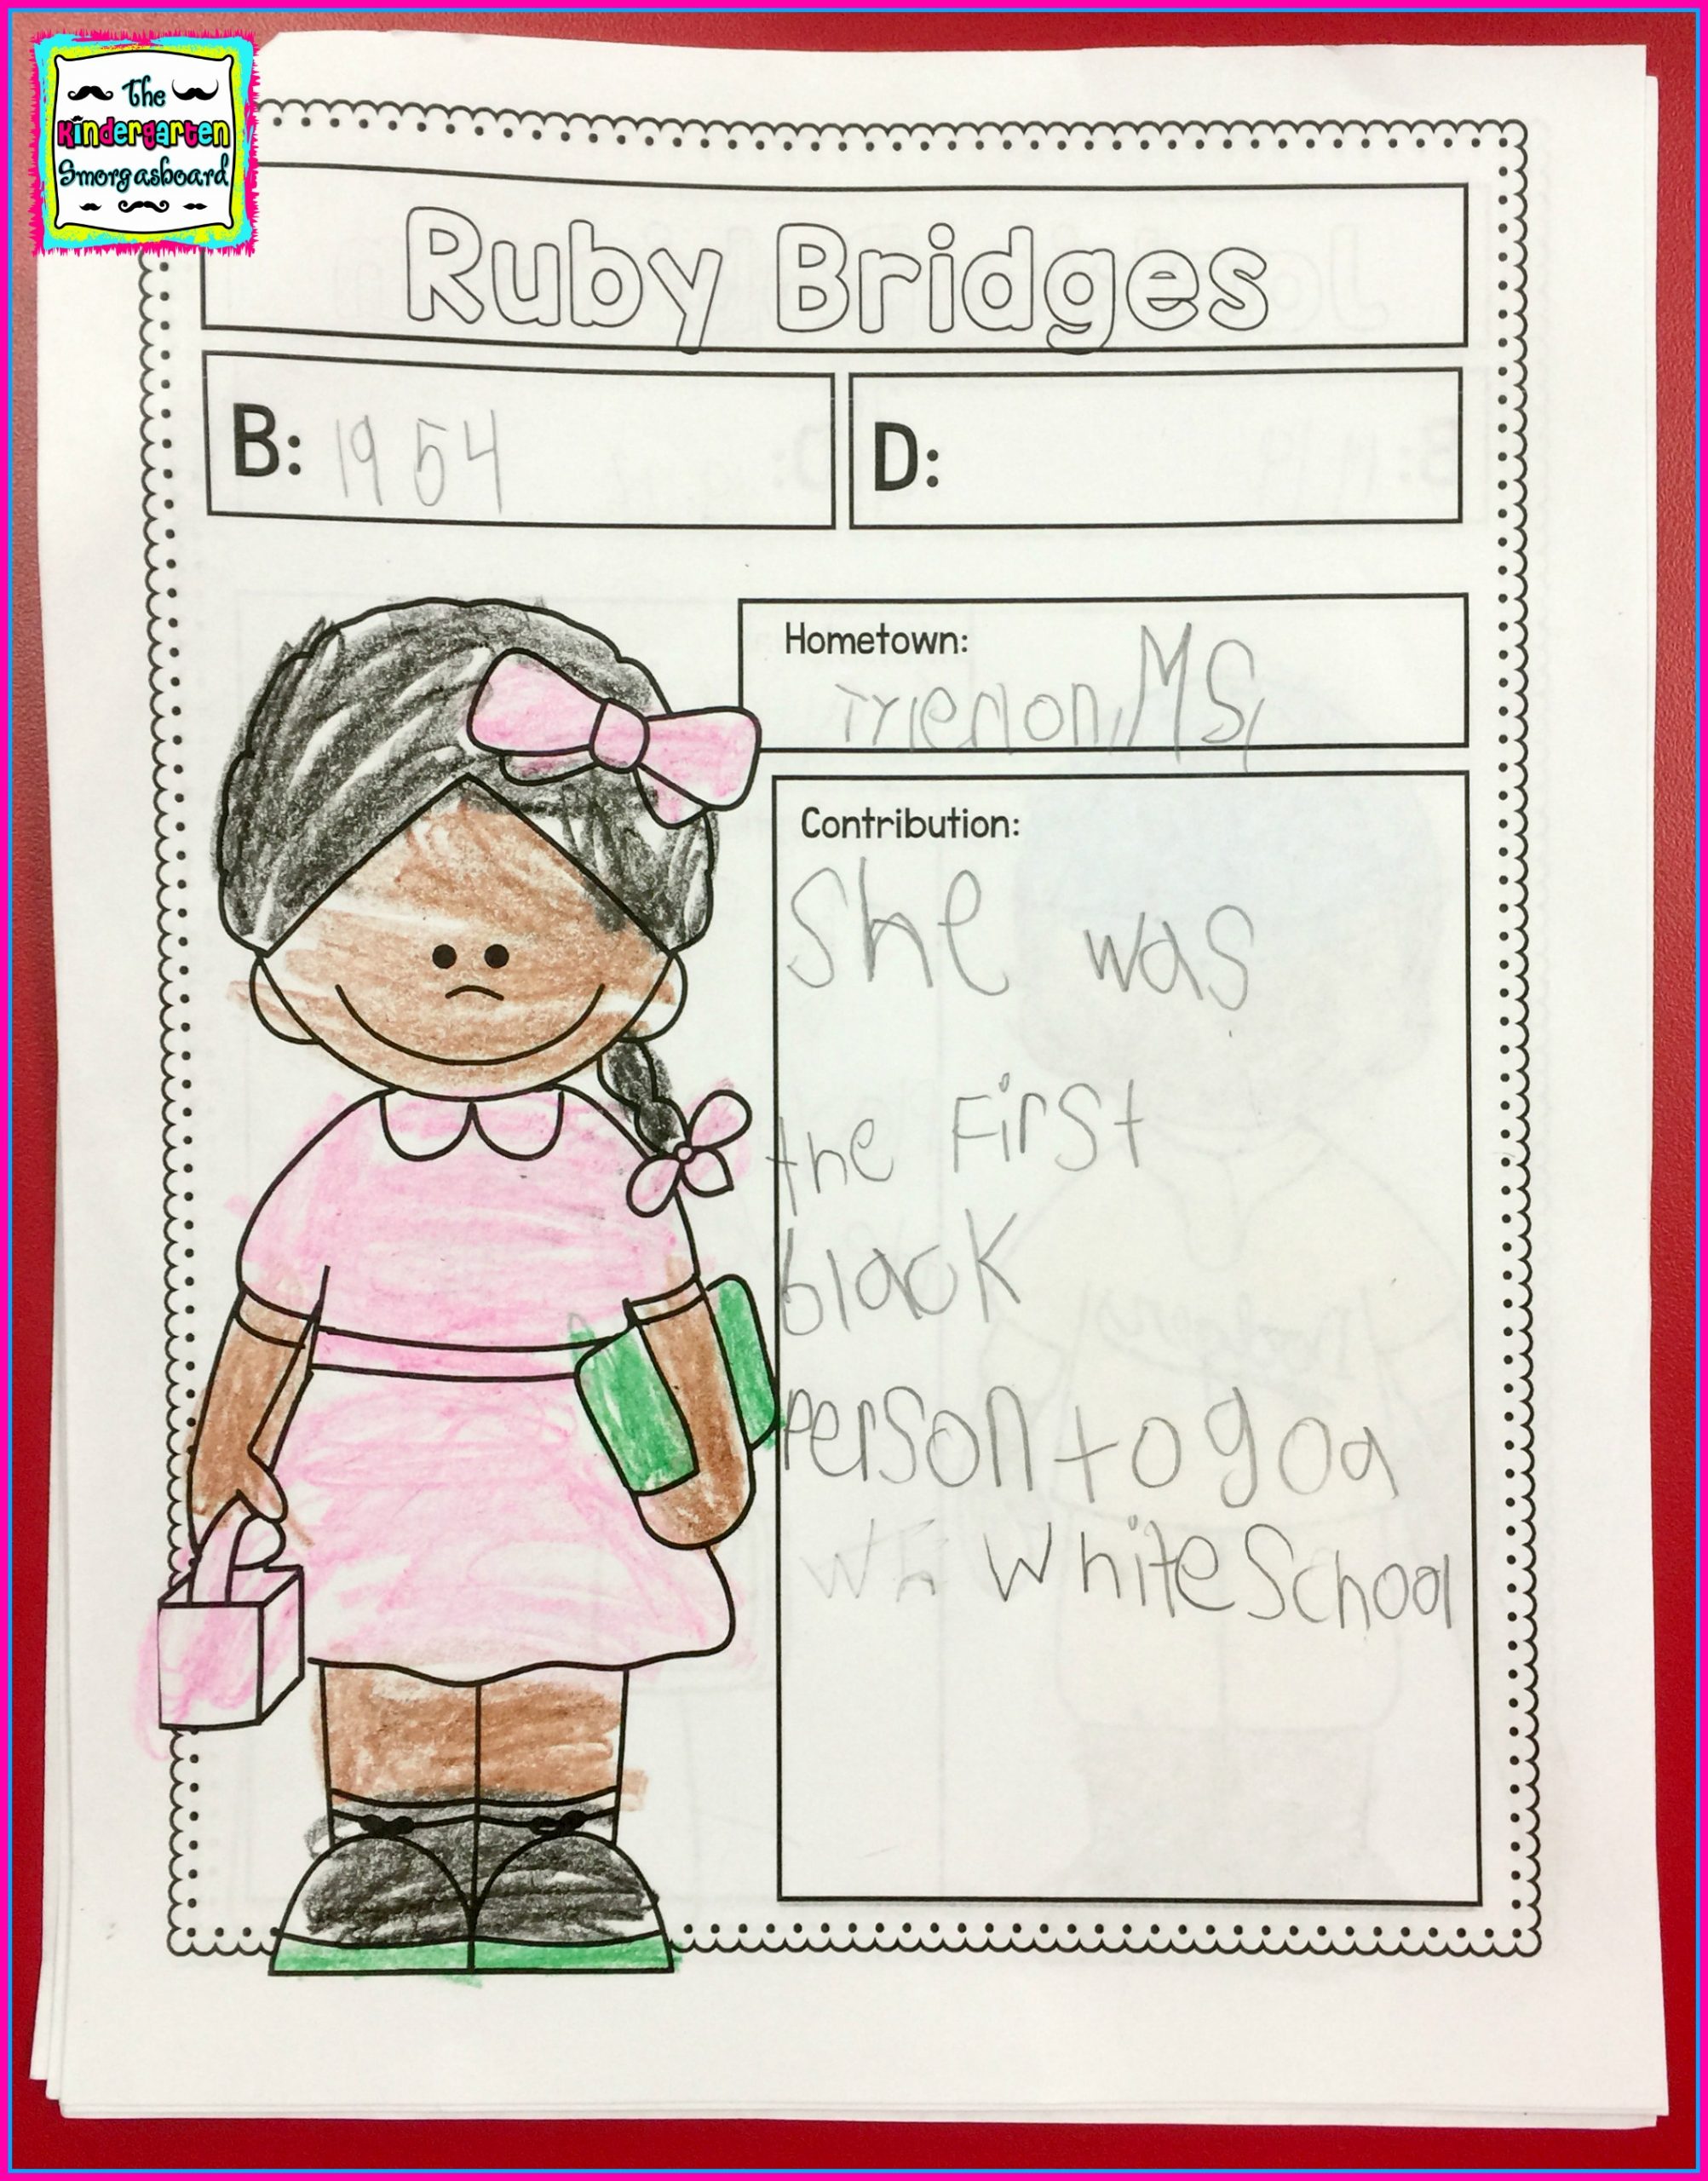 The
Kindergarten
Smorgasboard
Ruby Bridges
B: 1954
D:
Hometown:
MS,
Contribution:
She was
the First
black
Person to go a
Wh White School